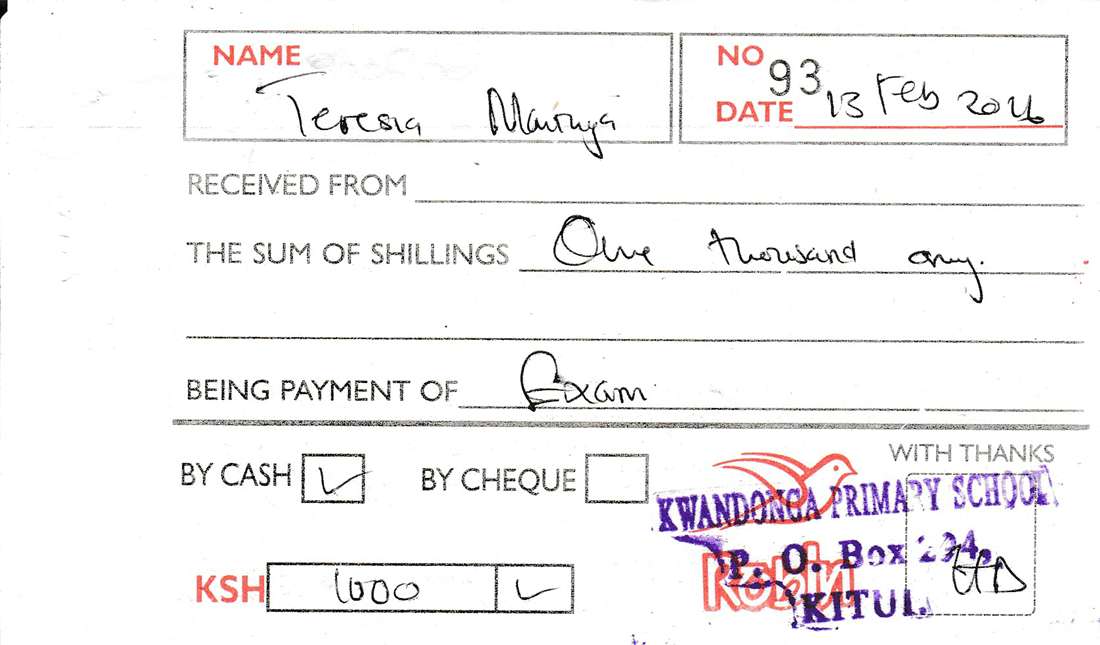 NAME
Teresia Mavinya
NO 93
DATE 13 Feb 2026
RECEIVED FROM
THE SUM OF SHILLINGS One thousand only.
BEING PAYMENT OF Exam
WITH THANKS
BY CASH BY CHEQUE
KWANDONGA PRIMARY SCHOOL
P. O. Box 294,
KITUI.
Robin
KSH 1000